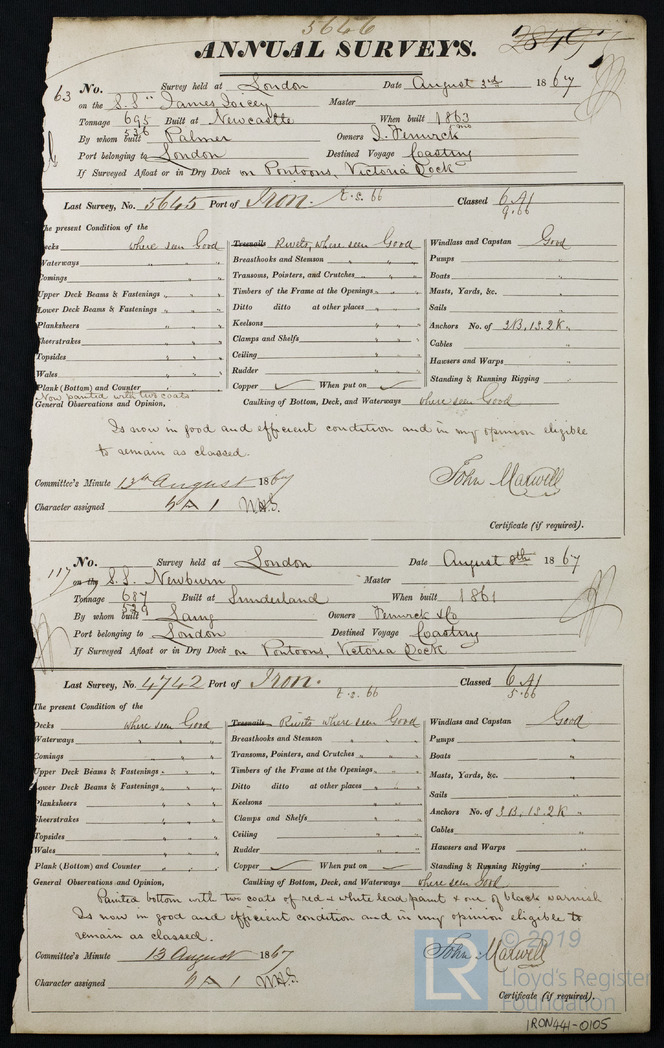 5646
ANNUAL SURVEYS.
63 No. Survey held at London Date August 3rd 1867
on the S.S "James Joicey Master
Tonnage 695 Built at Newcastle When built 1863
536
By whom built Palmer Owners J. Fenwick
Port belonging to London Destined Voyage Coasting
If Surveyed Afloat or in Dry Dock on Pontoons, Victoria Dock
Last Survey, No. 5645 Port of Iron. Classed 6 A1
9.66
The present Condition of the
Decks where seen Good Treenails Rivets, where seen Good Windlass and Capstan Good
Waterways " " Breasthooks and Stemson " " " Pumps "
Comings " " Transoms, Pointers, and Crutches " " " Boats "
Upper Deck Beams & Fastenings " " Timbers of the Frame at the Openings " " " Masts, Yards, &c. "
Lower Deck Beams & Fastenings " " Ditto ditto at other places " " " Sails "
Planksheers " " Keelsons " " Anchors No. of 3B, 1S, 2K "
Sheerstrakes " " Clamps and Shelfs " " Cables "
Topsides " " Ceiling " " Hawsers and Warps "
Wales " " Rudder " " Standing & Running Rigging "
Plank (Bottom) and Counter " " Copper ✓ When put on ✓
Now painted with two coats
General Observations and Opinion, Caulking of Bottom, Deck, and Waterways where seen Good
Is now in good and efficient condition and in my opinion eligible
to remain as classed.
Committee's Minute 13th August 1867 John Maxwell
Character assigned 6 A 1
Certificate (if required).
117 No. Survey held at London Date August 8th 1867
on the S.S. Newburn Master
Tonnage 687 Built at Sunderland When built 1861
529
By whom built Laing Owners Fenwick & Co
Port belonging to London Destined Voyage Coasting
If Surveyed Afloat or in Dry Dock on Pontoons, Victoria Dock
Last Survey, No. 4742 Port of Iron. Classed 6 A1
5.66
The present Condition of the
Decks where seen Good Treenails Rivets where seen Good Windlass and Capstan Good
Waterways " " Breasthooks and Stemson " " " Pumps "
Comings " " Transoms, Pointers, and Crutches " " " Boats "
Upper Deck Beams & Fastenings " " Timbers of the Frame at the Openings " " " Masts, Yards, &c. "
Lower Deck Beams & Fastenings " " Ditto ditto at other places " " " Sails "
Planksheers " " Keelsons " " Anchors No. of 3B, 1S. 2K "
Sheerstrakes " " Clamps and Shelfs " " Cables "
Topsides " " Ceiling " " Hawsers and Warps "
Wales " " Rudder " " Standing & Running Rigging "
Plank (Bottom) and Counter " " Copper ✓ When put on ✓
General Observations and Opinion, Caulking of Bottom, Deck, and Waterways where seen Good
Painted bottom with two coats of red & white lead paint & one of black varnish
Is now in good and efficient condition and in my opinion eligible to
remain as classed.
Committee's Minute 13 August 1867 John Maxwell
Character assigned 6 A 1
Certificate (if required).
LR © 2019
Lloyd's Register
Foundation
IRON441-0105